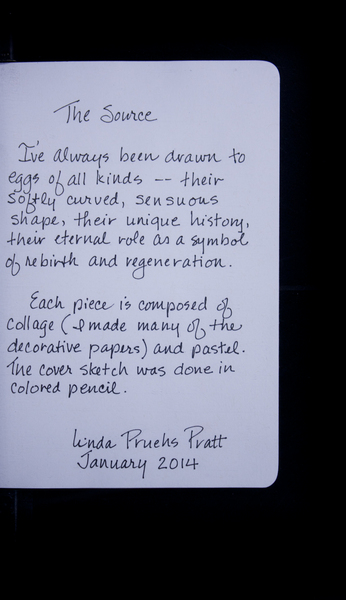 The Source
I've always been drawn to
eggs of all kinds -- their
softly curved, sensuous
shape, their unique history,
their eternal role as a symbol
of rebirth and regeneration.
Each piece is composed of
collage (I made many of the
decorative papers) and pastel.
The cover sketch was done in
colored pencil.
Linda Pruehs Pratt
January 2014